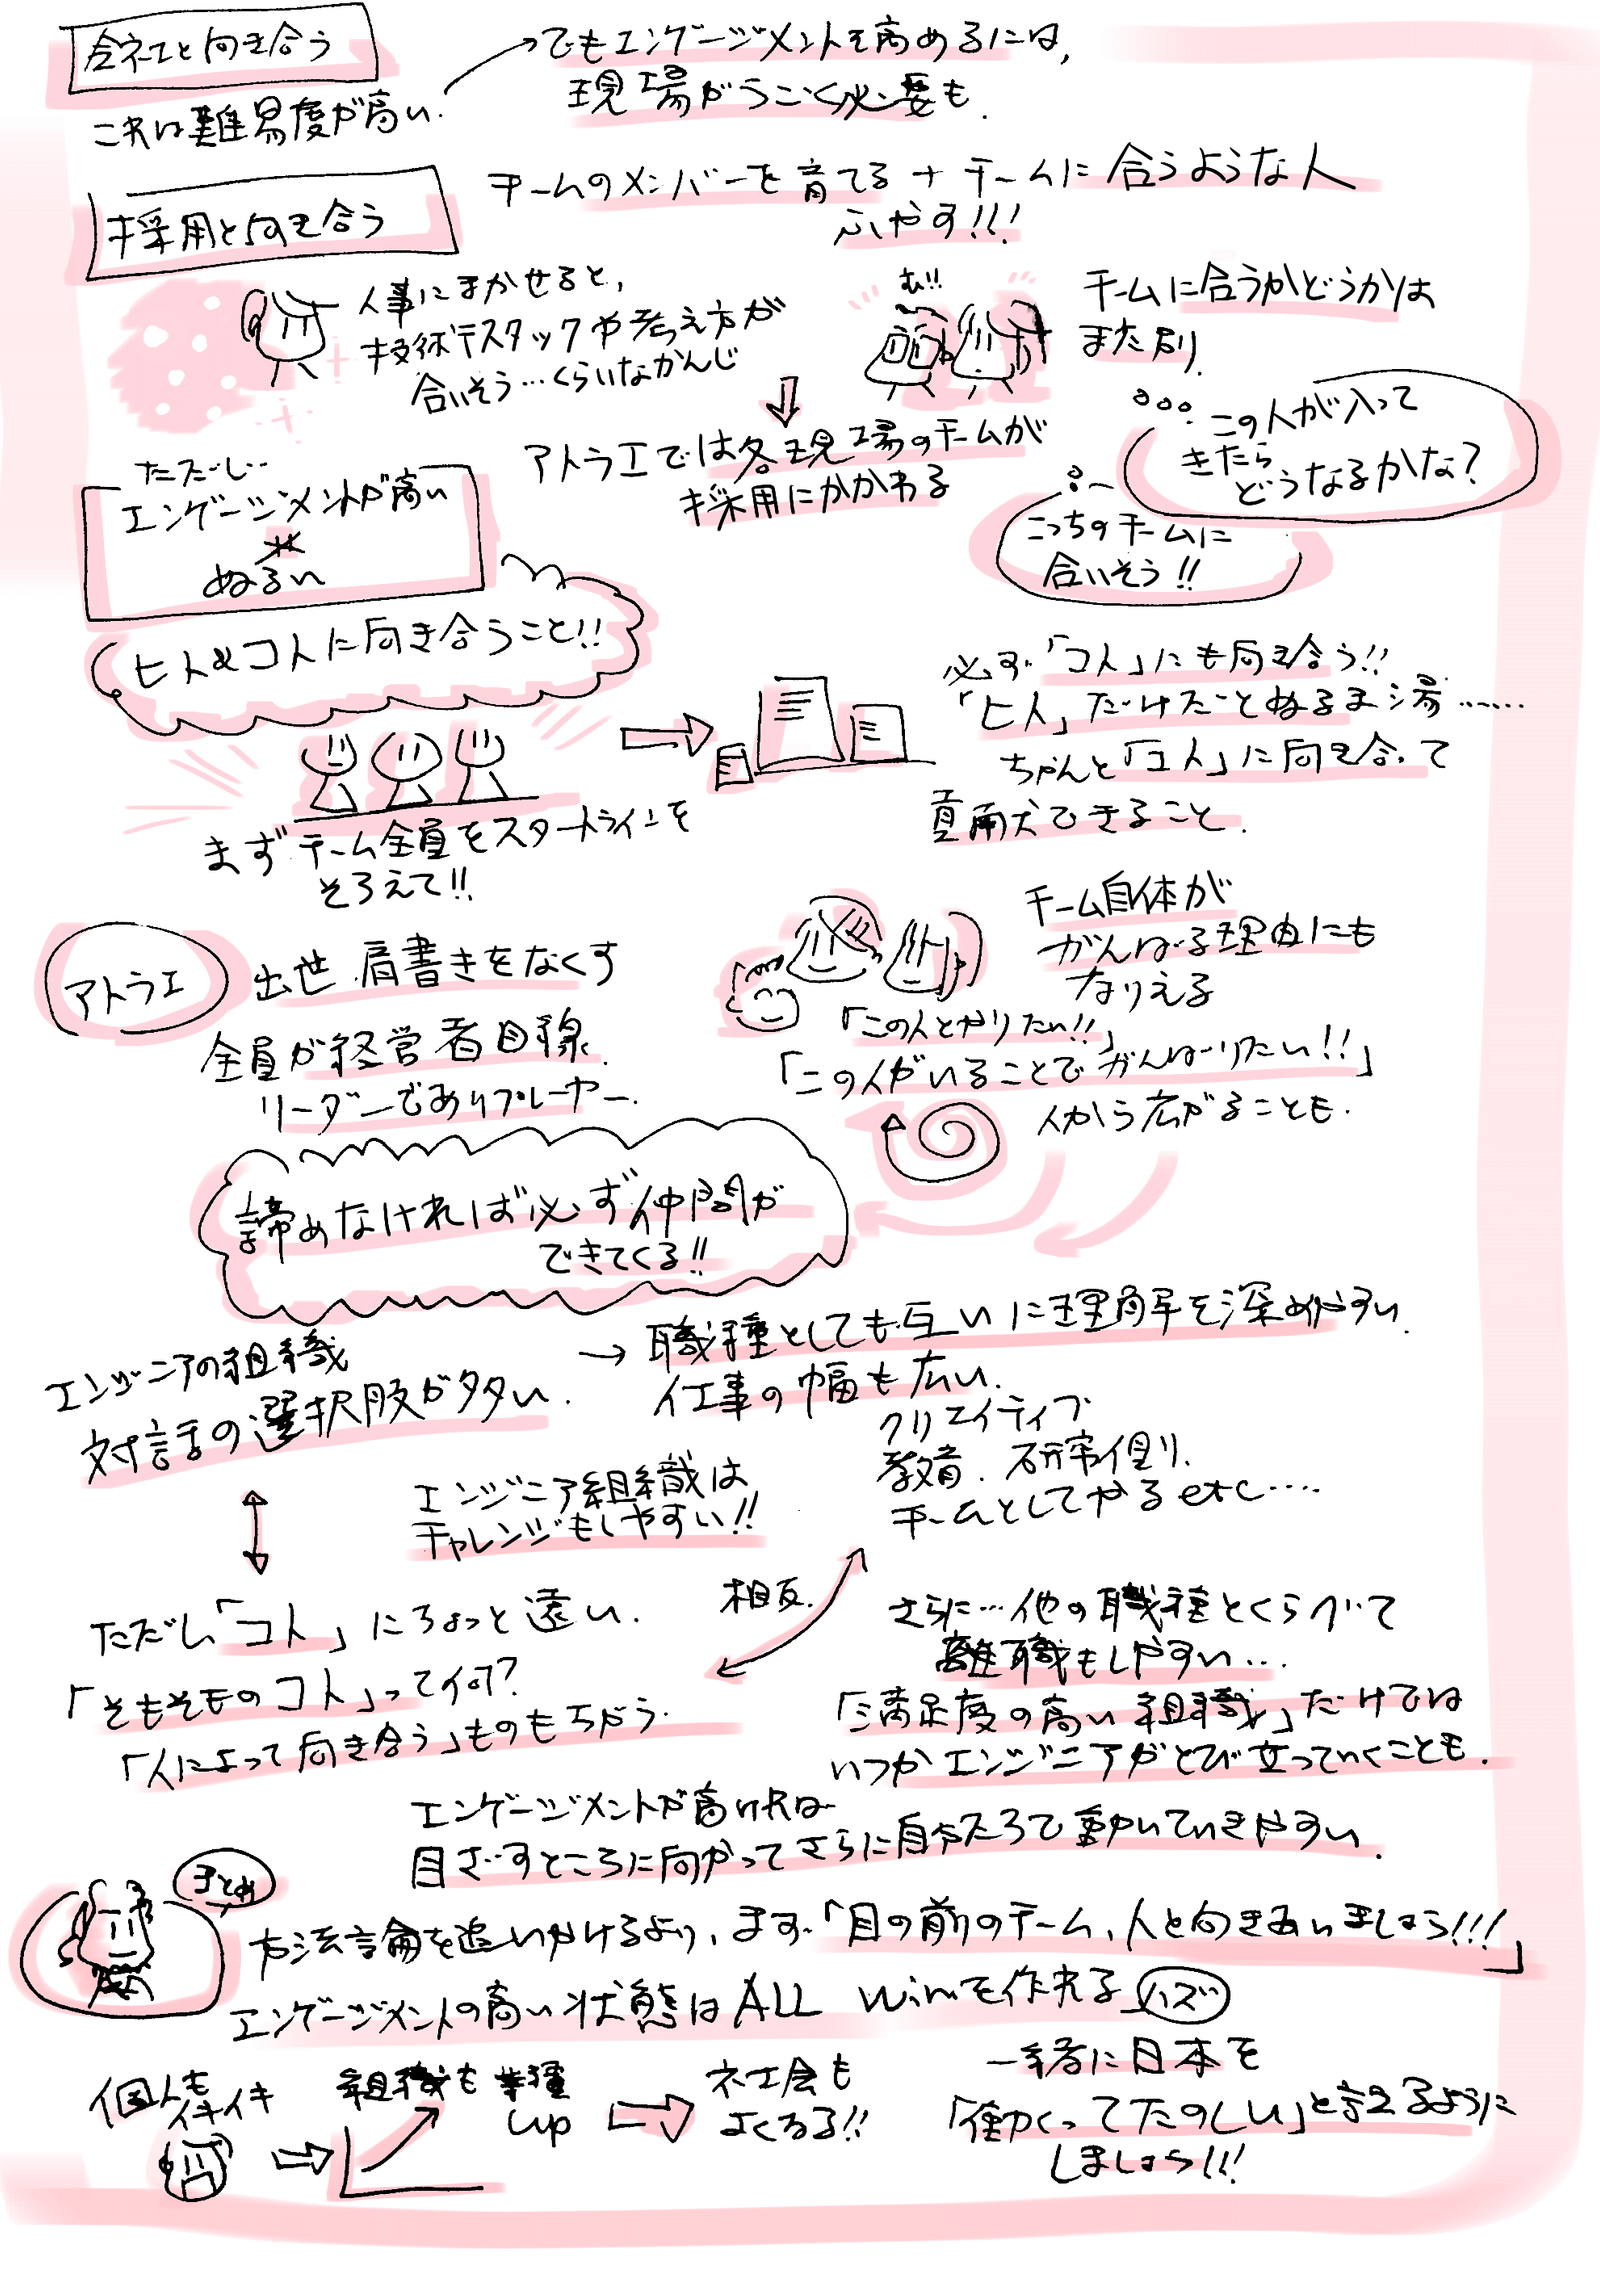 会社と向き合う
これは難易度が高い.
でもエンゲージメントを高めるには,
現場がうごく必要も.
採用と向き合う
チームのメンバーを育てる + チームに合うような人
ふやす!!!
人事にまかせると,
技術スタックや考え方が
合いそう…くらいなかんじ
む!!
チームに合うかどうかは
また別
アトラエでは各現場のチームが
採用にかかわる
この人が入って
きたら
どうなるかな?
こっちのチームに
合いそう!!
ただし…
エンゲージメントが高い
≠
ぬるい
ヒト&コトに向き合うこと!!
まずチーム全員をスタートラインを
そろえて!!
必ず「コト」にも向き合う!!
「ヒト」だけだとぬるま湯……
ちゃんと「コト」に向き合って
貢献できること.
アトラエ
出世.肩書きをなくす
全員が経営者目線.
リーダーでありプレーヤー.
チーム自体が
がんばる理由にも
なりえる
「この人とやりたい!!」
「この人がいることでがんばりたい!!」
人から広がることも.
諦めなければ必ず仲間が
できてくる!!
エンジニアの組織
対話の選択肢が多い.
→ 職種としても互いに理解を深めやすい.
仕事の幅も広い.
クリエイティブ
教育.研究個り.
チームとしてやるetc….
エンジニア組織は
チャレンジもしやすい!!
ただし「コト」にちょっと遠い.
「そもそものコト」って何?
「人によって向き合う」ものもちがう.
相反.
さらに…他の職種とくらべて
離職もしやすい…
「満足度の高い組織」だけでは
いつかエンジニアがとび立っていくことも.
エンゲージメントが高ければ
目ざすところに向かってさらに自分たちで動いていきやすい.
まとめ
方法論を追いかけるより,まず「目の前のチーム,人と向きあいましょう!!!」
エンゲージメントの高い状態はALL Winを作れるハズ
個人も
イキイキ
組織も業種
up
社会も
よくなる!!
一緒に日本を
「働くってたのしい」と言えるように
しましょう!!!